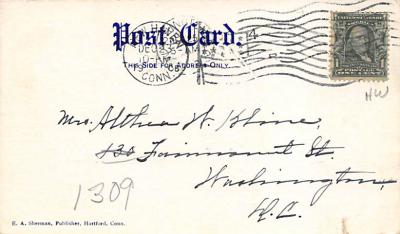 Post Card.
THIS SIDE FOR ADDRESS ONLY.
DEC
CONN.
4
ONE CENT
NW
Mrs. Althea W. Kline,
430 Fairmount St.
Washington,
D.C.
1309
E. A. Sherman, Publisher, Hartford, Conn.